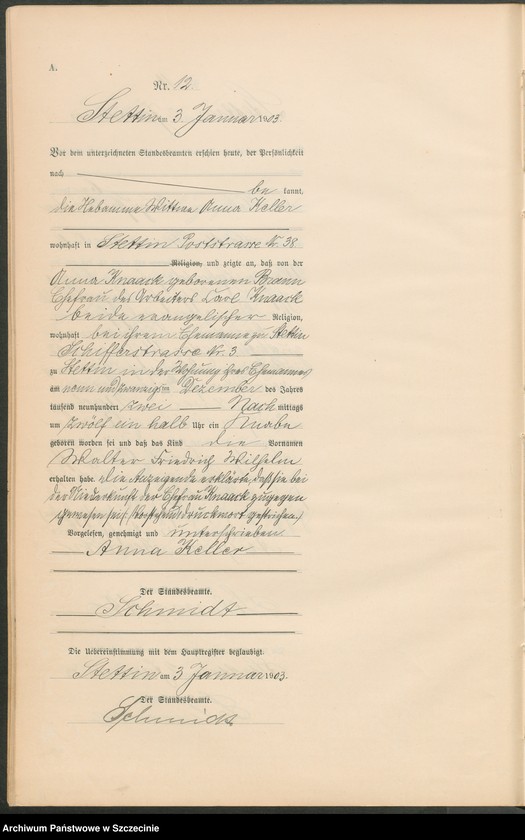 A.
Nr. 12.
Stettin am 3. Januar 1903.
Vor dem unterzeichneten Standesbeamten erschien heute, der Persönlichkeit
nach
be kannt,
die Hebamme Wittwe Anna Keller
wohnhaft in Stettin Poststrasse Nr. 38
Religion, und zeigte an, daß von der
Anna Knaack geborenen
Ehefrau des Arbeiters Carl Knaack
beide evangelischer Religion,
wohnhaft bei ihrem Ehemanne zu Stettin
Schifferstrasse Nr. 3
zu Stettin in der Wohnung ihres Ehemannes
am neun und zwanzigsten Dezember des Jahres
tausend neunhundert zwei Nach mittags
um zwölf ein halb Uhr ein Knabe
geboren worden sei und daß das Kind die Vornamen
Walter Friedrich Wilhelm
erhalten habe. Die Anzeigende erklärte, daß sie bei
der Niederkunft der Ehefrau Knaack zugegen
gewesen sei. (Vorstehend Druckwort gestrichen.)
Vorgelesen, genehmigt und unterschrieben
Anna Keller
Der Standesbeamte.
Schmidt
Die Uebereinstimmung mit dem Hauptregister beglaubigt.
Stettin am 3. Januar 1903.
Der Standesbeamte.
Schmidt
Archiwum Państwowe w Szczecinie